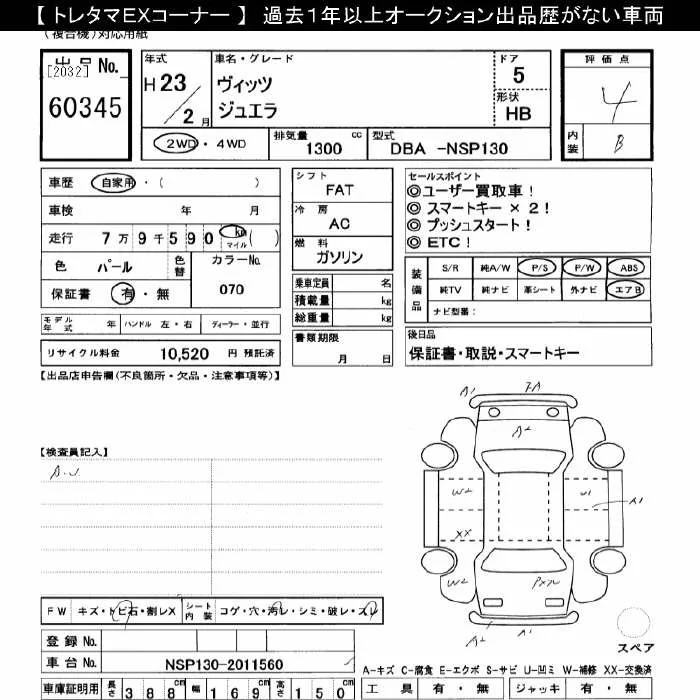 【 トレタマEXコーナー 】 過去1年以上オークション出品歴がない車両
(複合機)対応用紙
出品No.
[2032]
60345
年式
H 23
／2 月
車名・グレード
ヴィッツ
ジュエラ
ドア
5
形状
HB
2WD・4WD
排気量 cc
1300
型式
DBA -NSP130
評価点
4
内装
B
車歴 自家用・( )
車検 年 月
走行 7万9千590 km マイル ( )
色 パール 色替 カラーNo.
保証書 有・無 070
モデル年式 年 ハンドル 左・右 ディーラー・並行
リサイクル料金 10,520 円 預託済
シフト
FAT
冷房
AC
燃料
ガソリン
乗車定員 名
積載量 kg
総重量 kg
書類期限
月 日
セールスポイント
◎ユーザー買取車!
◎スマートキー×2!
◎プッシュスタート!
◎ETC!
装備品
S/R 純A/W P/S P/W ABS
純TV 純ナビ 革シート 外ナビ エアB
ナビ型番:
後日品
保証書・取説・スマートキー
【出品店申告欄(不良箇所・欠品・注意事項等)】
【検査員記入】
A1
A2
W2
XX
W2
U1
A1
A2
A1
FW キズ・トビ石・割レX シート内装 コゲ・穴・汚レ・シミ・破レ・スレ
登録No.
車台No. NSP130-2011560
車庫証明用 長さ 388cm 幅 169cm 高さ 150cm
スペア
A-キズ C-腐食 E-エクボ S-サビ U-凹ミ W-補修 XX-交換済
工具 有・無 ジャッキ 有・無